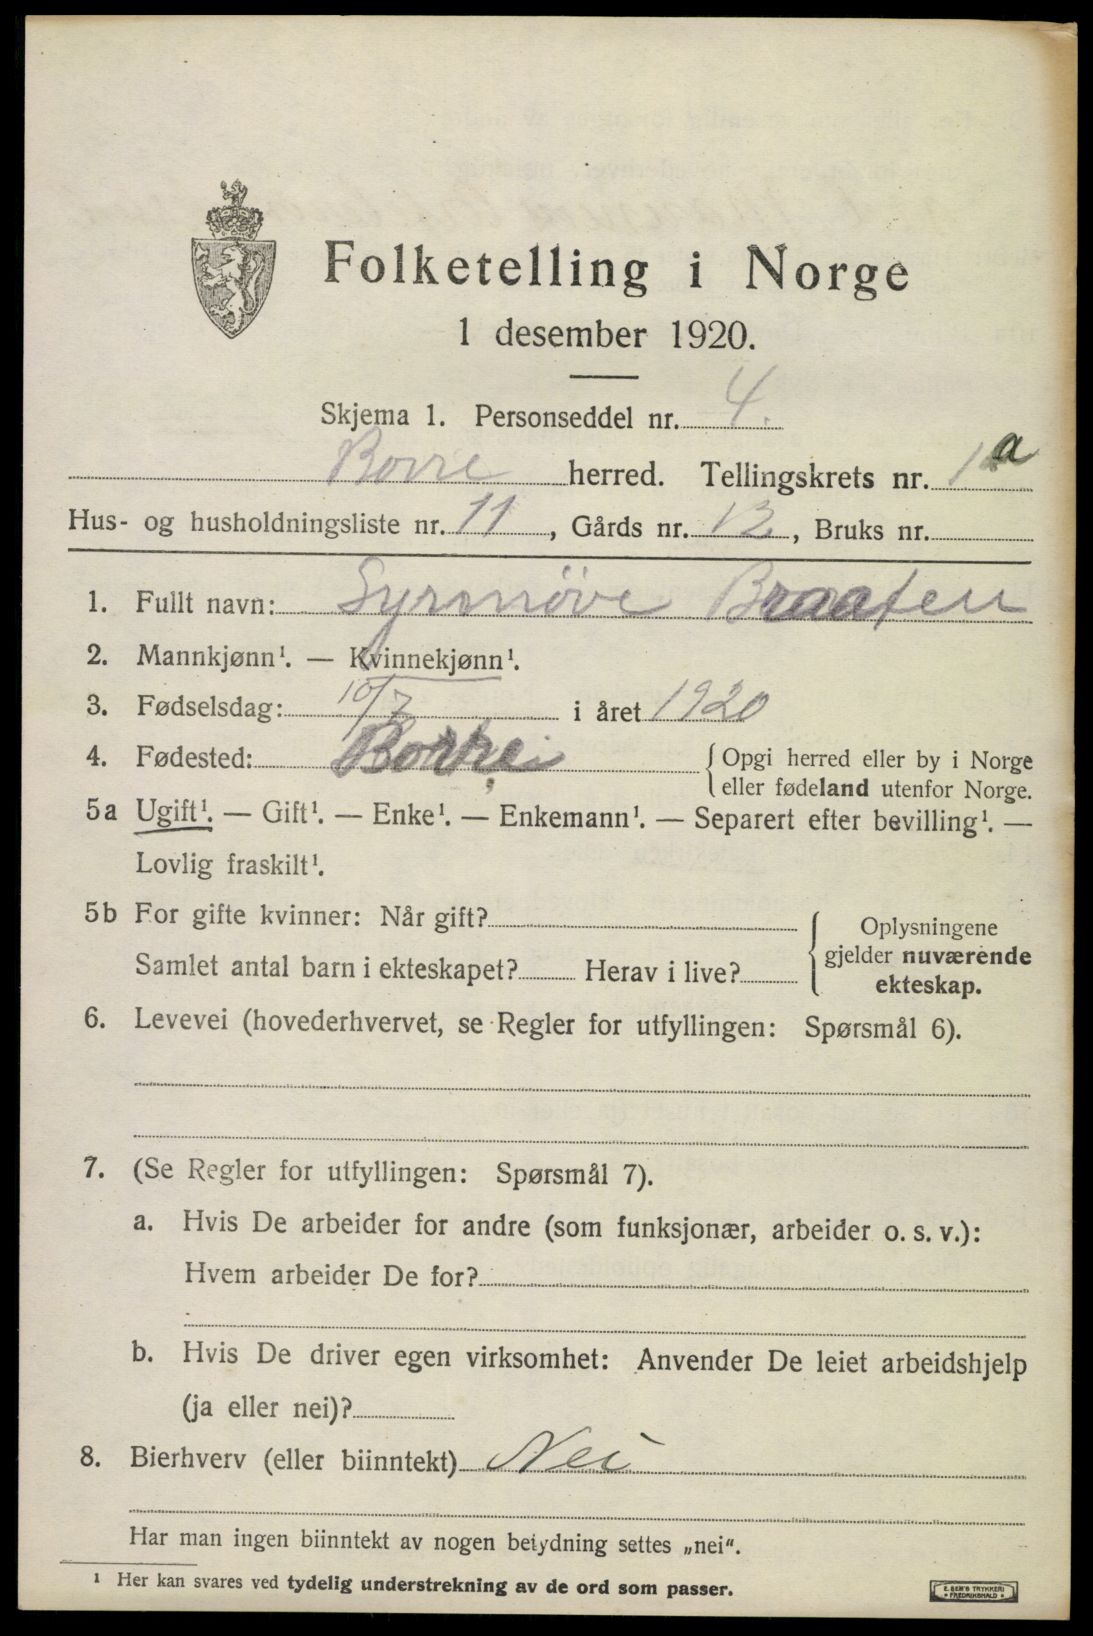 Folketelling i Norge
1 desember 1920.
Skjema 1. Personseddel nr. 4.
Borre herred. Tellingskrets nr. 1 a
Hus- og husholdningsliste nr. 11, Gårds nr. 13, Bruks nr.
1. Fullt navn: Synnøve Braaten
2. Mannkjønn¹. — Kvinnekjønn¹.
3. Fødselsdag: 10/7 i året 1920
4. Fødested: Borre { Opgi herred eller by i Norge
eller fødeland utenfor Norge.
5a Ugift¹. — Gift¹. — Enke¹. — Enkemann¹. — Separert efter bevilling¹. —
Lovlig fraskilt¹.
5b For gifte kvinner: Når gift?
Samlet antal barn i ekteskapet? Herav i live?
{ Oplysningene
gjelder nuværende
ekteskap.
6. Levevei (hovederhvervet, se Regler for utfyllingen: Spørsmål 6).
7. (Se Regler for utfyllingen: Spørsmål 7).
a. Hvis De arbeider for andre (som funksjonær, arbeider o. s. v.):
Hvem arbeider De for?
b. Hvis De driver egen virksomhet: Anvender De leiet arbeidshjelp
(ja eller nei)?
8. Bierhverv (eller biinntekt) Nei
Har man ingen biinntekt av nogen betydning settes „nei".
¹ Her kan svares ved tydelig understrekning av de ord som passer.
E. SEM'S TRYKKERI
FREDRIKSHALD